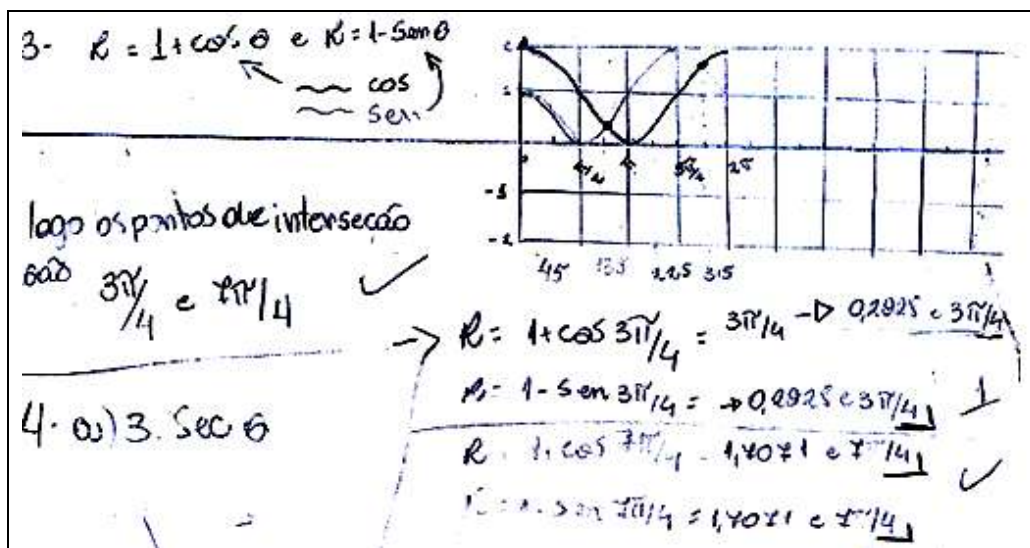 3- R = 1+cos θ e R = 1-Sen θ
cos
Sen
1
-1
-2
π/2 π 3π/2 2π
45 135 225 315
logo os pontos de interseção
são 3π/4 e 7π/4
R = 1+cos 3π/4 = 3π/4 → 0,2925 e 3π/4
R = 1-Sen 3π/4 = → 0,2925 e 3π/4 1
R 1+cos 7π/4 = 1,7071 e 7π/4
sen 7π/4 = 1,7071 e 7π/4
4- a) 3. Sec θ